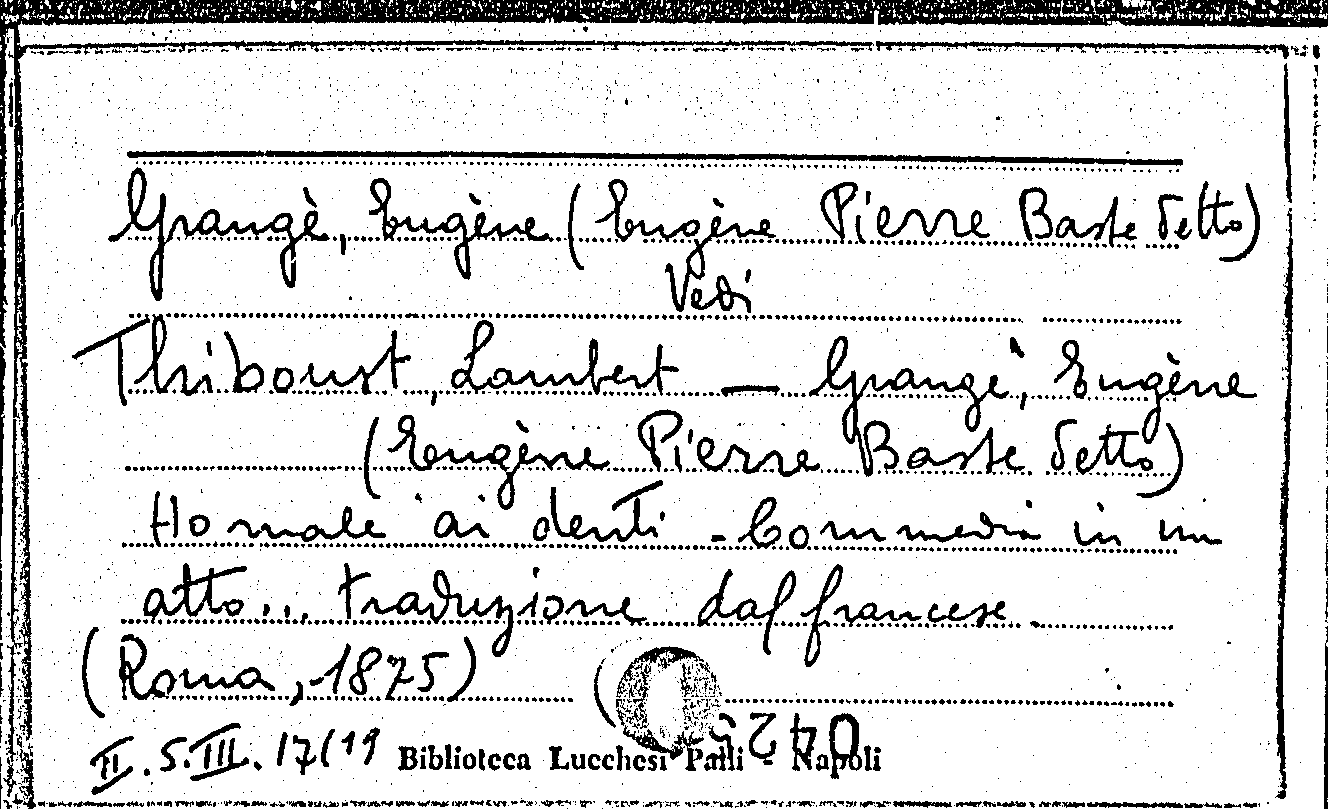 Grangè, Eugène (Eugène Pierre Baste detto)
Vedi
Thiboust, Lambert — Grangè, Eugène
(Eugène Pierre Baste detto)
Ho male ai denti - Commedia in un
atto... traduzione dal francese.
(Roma, 1875)
II. S. III. 17(19 Biblioteca Lucchesi Palli - Napoli